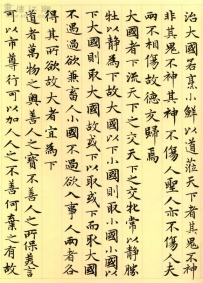 治大國若烹小鮮以道莅天下者其鬼不神
非其鬼不神其神不傷人聖人亦不傷人夫
兩不相傷故德交歸焉
大國者下流天下之交天下之交牝常以靜勝
牡以靜為下故大國以下小國則取小國小國
下大國則取大國故或下以取或下而取大國
不過欲兼畜人小國不過欲入事人兩者各
得其所欲故大者宜為下
道者萬物之奧善人之寶不善人之所保美言
可以市尊行可以加人人之不善何棄之有故